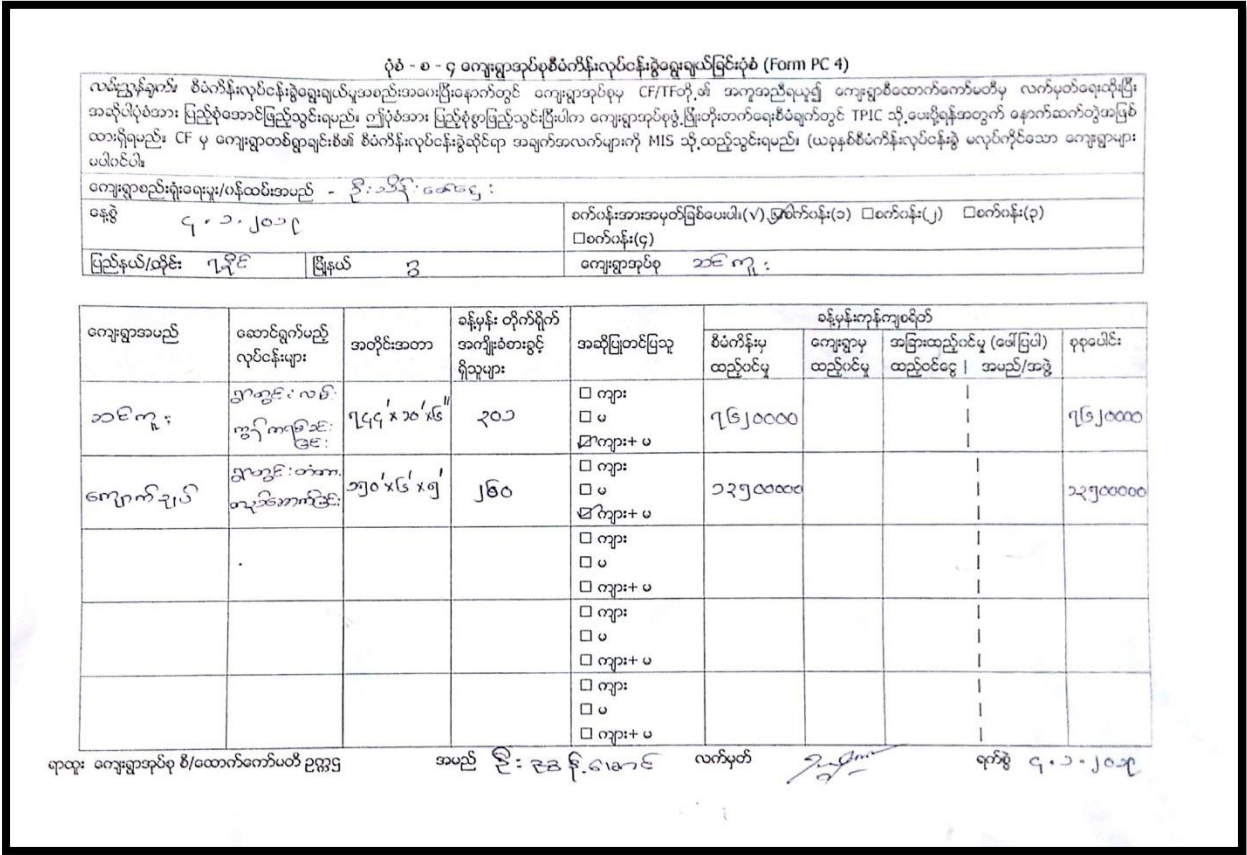 ပုံစံ - စ - ၄ ကျေးရွာအုပ်စုစီမံကိန်းလုပ်ငန်းခွဲရွေးချယ်ခြင်းပုံစံ (Form PC 4)
လမ်းညွှန်ချက်။ စီမံကိန်းလုပ်ငန်းခွဲရွေးချယ်မှုအစည်းအဝေးပြီးနောက်တွင် ကျေးရွာအုပ်စုမှ CF/TFတို့၏ အကူအညီရယူ၍ ကျေးရွာစီထောက်ကော်မတီမှ လက်မှတ်ရေးထိုးပြီး
အဆိုပါပုံစံအား ပြည့်စုံအောင်ဖြည့်သွင်းရမည်။ ဤပုံစံအား ပြည့်စုံစွာဖြည့်သွင်းပြီးပါက ကျေးရွာအုပ်စုဖွံ့ဖြိုးတိုးတက်ရေးစီမံချက်တွင် TPIC သို့ပေးပို့ရန်အတွက် နောက်ဆက်တွဲအဖြစ်
ထားရှိရမည်။ CF မှ ကျေးရွာတစ်ရွာချင်းစီ၏ စီမံကိန်းလုပ်ငန်းခွဲဆိုင်ရာ အချက်အလက်များကို MIS သို့ထည့်သွင်းရမည်။ (ယခုနှစ်စီမံကိန်းလုပ်ငန်းခွဲ မလုပ်ကိုင်သော ကျေးရွာများ
မပါဝင်ပါ။
ကျေးရွာစည်းရုံးရေးမှူး/ဝန်ထမ်းအမည် - ဦးသိန်းဌေး
နေ့စွဲ ၄.၁.၂၀၁၉ စက်ဝန်းအားအမှတ်ခြစ်ပေးပါ။(√) ☑စက်ဝန်း(၁) □စက်ဝန်း(၂) □စက်ဝန်း(၃)
□စက်ဝန်း(၄)
ပြည်နယ်/တိုင်း ရခိုင် မြို့နယ် ဂွ ကျေးရွာအုပ်စု ဘင်ကူး
ကျေးရွာအမည် ဆောင်ရွက်မည့် လုပ်ငန်းများ အတိုင်းအတာ ခန့်မှန်း တိုက်ရိုက် အကျိုးခံစားခွင့် ရှိသူများ အဆိုပြုတင်ပြသူ ခန့်မှန်းကုန်ကျစရိတ်
စီမံကိန်းမှ ထည့်ဝင်မှု ကျေးရွာမှ ထည့်ဝင်မှု အခြားထည့်ဝင်မှု (ဖေါ်ပြပါ) ထည့်ဝင်ငွေ | အမည်/အဖွဲ့ စုစုပေါင်း
□ ကျား
ဘင်ကူး ရွာတွင်းလမ်း ကွန်ကရစ်ခင်းခြင်း ၇၄၄'x ၁၀'x၆" ၃၀၁ □ မ ၇၆၂၀၀၀၀ ၇၆၂၀၀၀၀
☑ကျား+ မ
□ ကျား
ကျောက်ချပ် ရွာတွင်းတံတား တည်ဆောက်ခြင်း ၁၅၀'x၆'x၅' ၂၆၀ □ မ ၁၃၅၀၀၀၀၀ ၁၃၅၀၀၀၀၀
☑ကျား+ မ
□ ကျား
□ မ
□ ကျား+ မ
□ ကျား
□ မ
□ ကျား+ မ
□ ကျား
□ မ
□ ကျား+ မ
ရာထူး ကျေးရွာအုပ်စု စီ/ထောက်ကော်မတီ ဥက္ကဌ အမည် ဦး လက်မှတ် ရက်စွဲ ၄.၁.၂၀၁၉